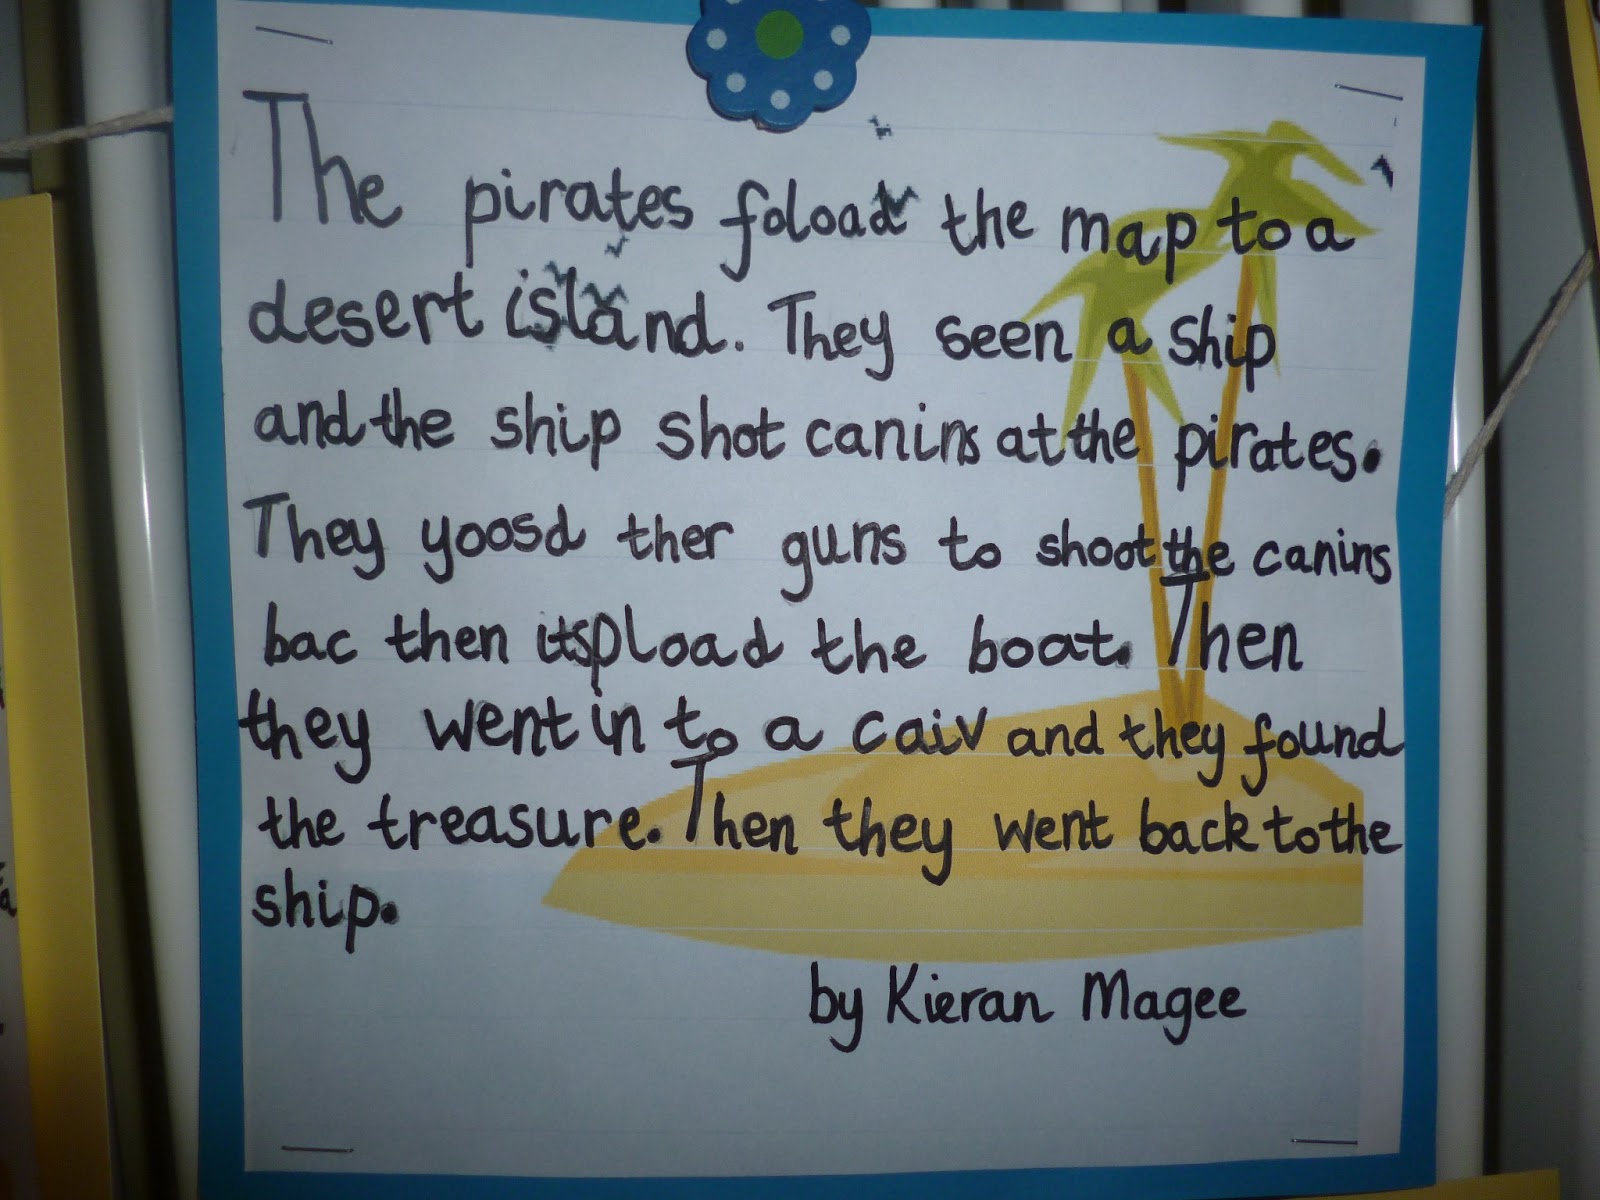 The pirates foload the map to a
desert island. They seen a ship
and the ship shot canins at the pirates.
They yoosd ther guns to shoot the canins
bac then itspload the boat. Then
they went in to a caiv and they found
the treasure. Then they went back to the
ship.
by Kieran Magee